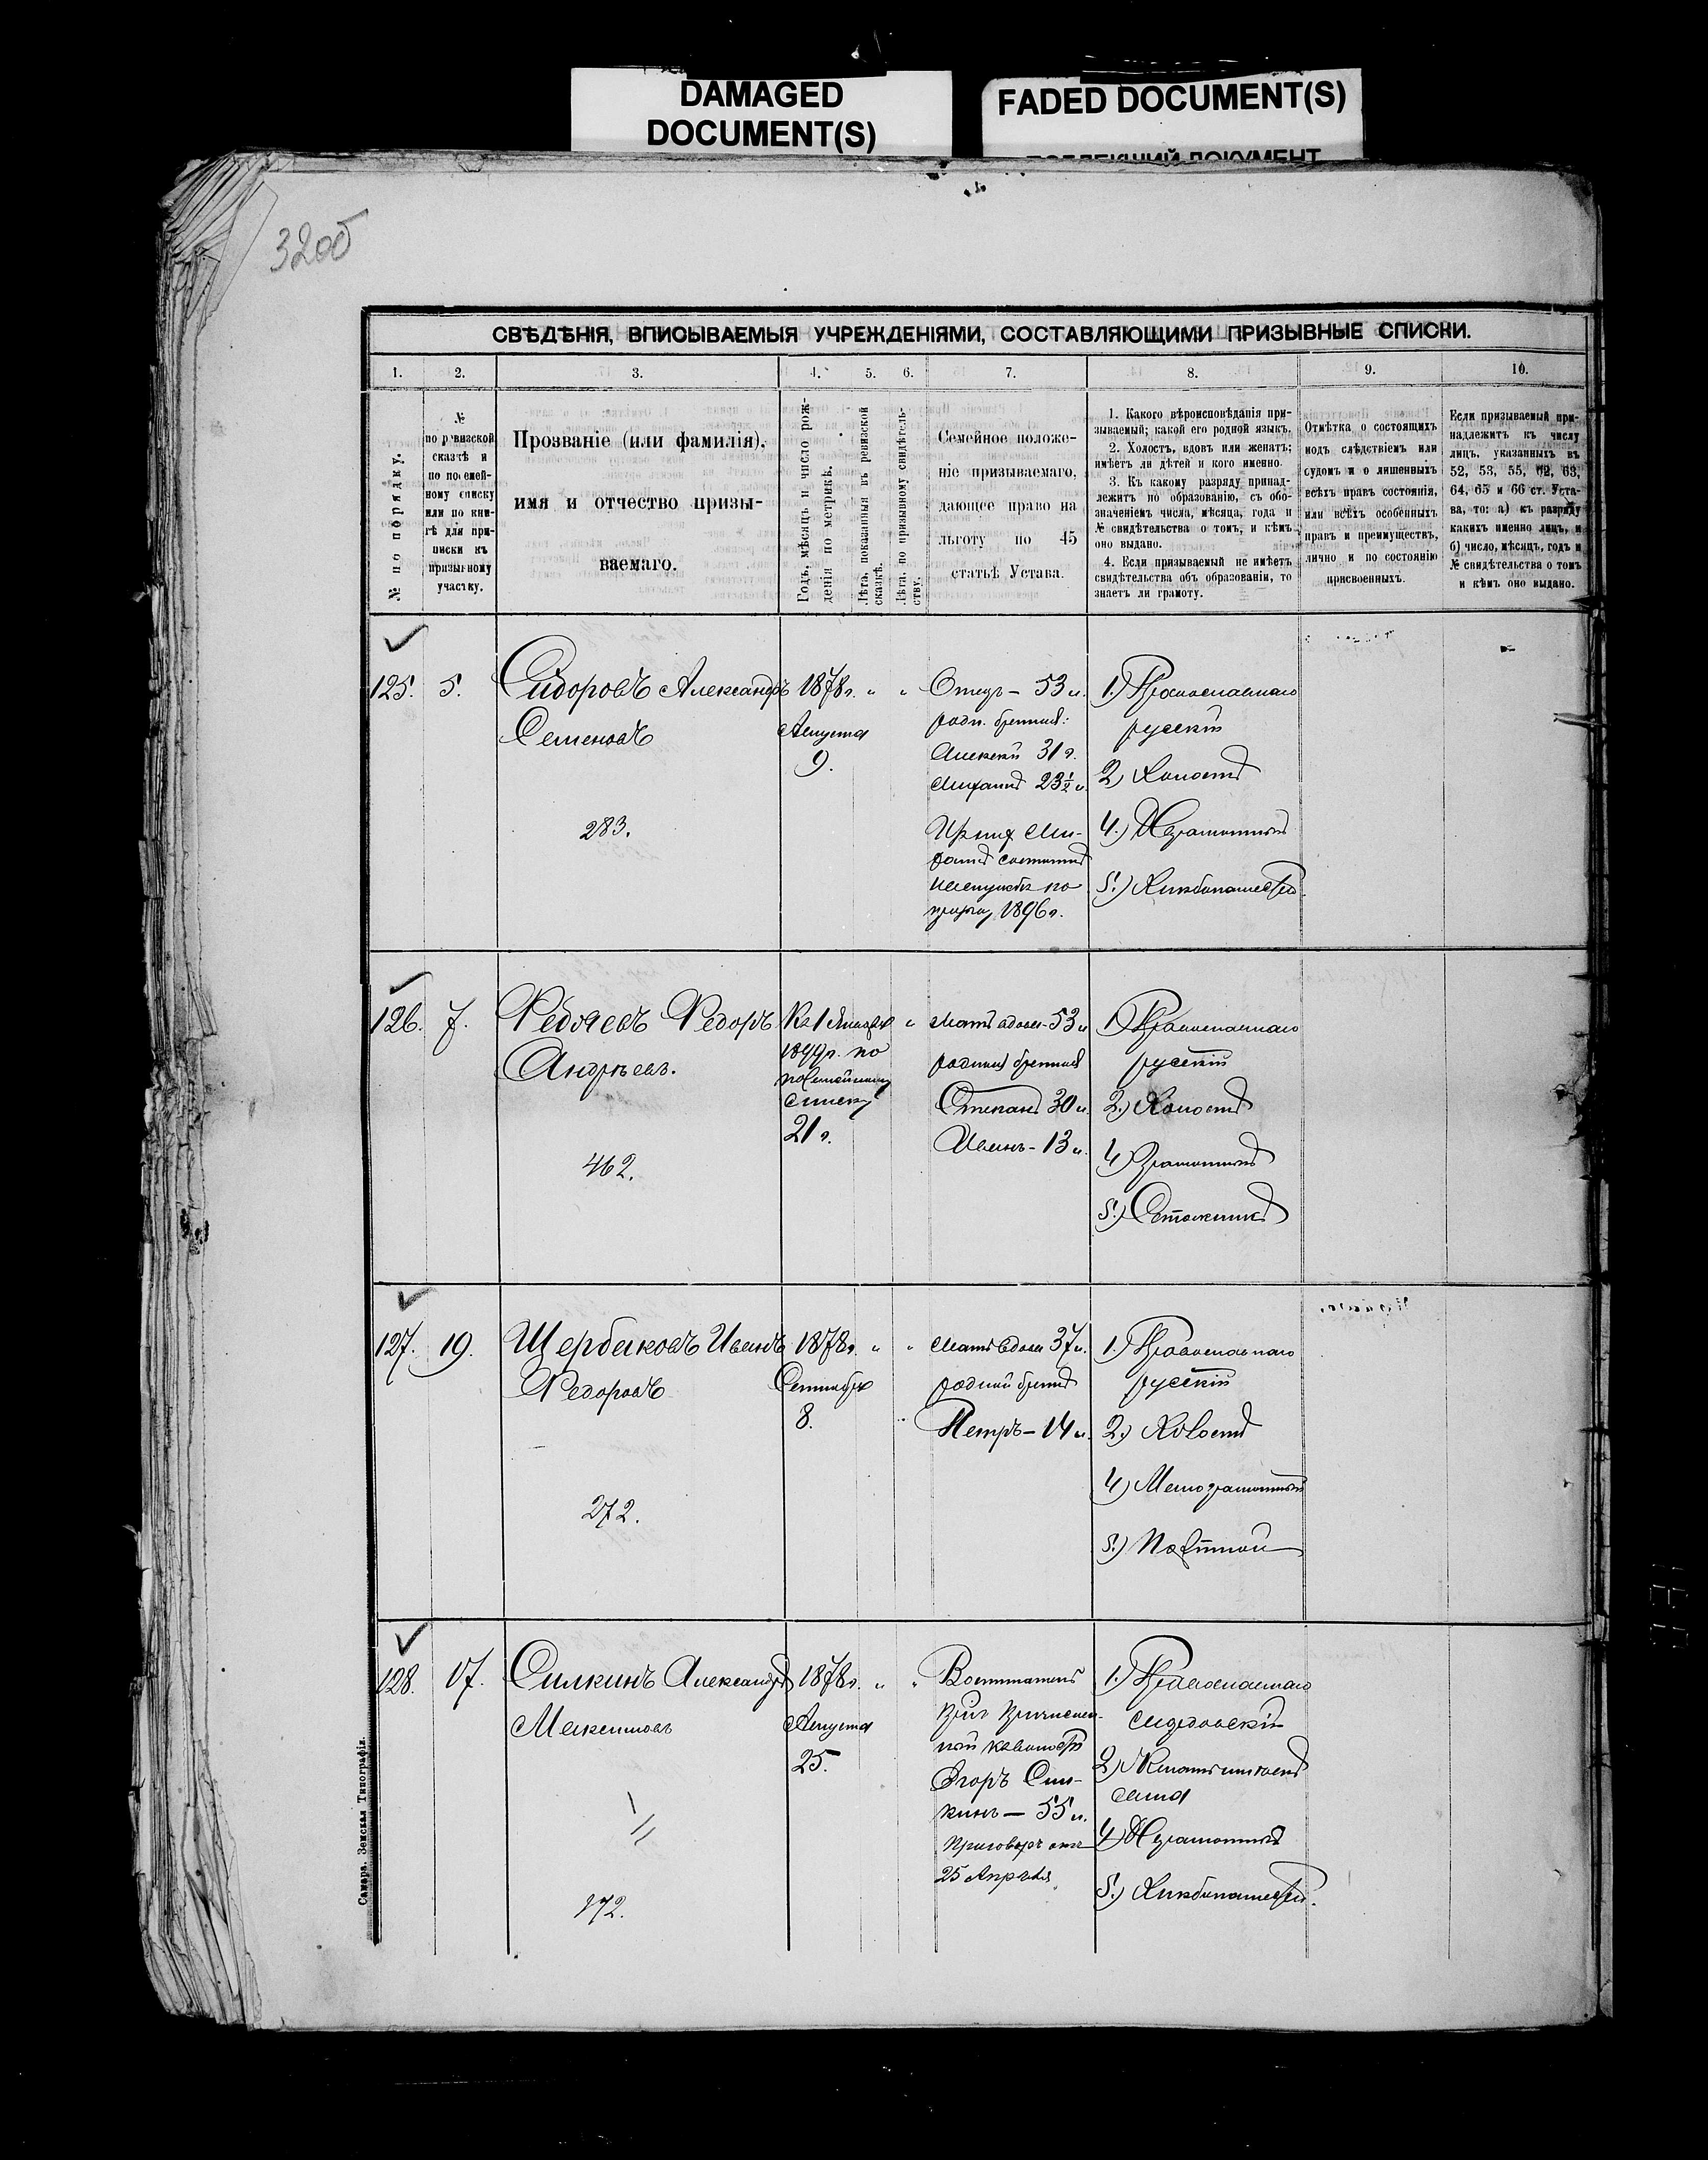 DAMAGED
DOCUMENT(S)
FADED DOCUMENT(S)
320об
СВѢДѢНІЯ, ВПИСЫВАЕМЫЯ УЧРЕЖДЕНІЯМИ, СОСТАВЛЯЮЩИМИ ПРИЗЫВНЫЕ СПИСКИ.
1. 2. 3. 4. 5. 6. 7. 8. 9. 10.
№ по порядку.
№
по ревизской
сказкѣ и
по посемей-
ному списку
или по кни-
гѣ для при-
писки къ
призывному
участку.
Прозваніе (или фамилія),
имя и отчество призы-
ваемаго.
Годъ, мѣсяцъ и число рож-
денія по метрикѣ.
Лѣта, показанныя въ ревизской
сказкѣ.
Лѣта, по призывному свидѣтель-
ству.
Семейное положе-
ніе призываемаго,
дающее право на
льготу по 45
статьѣ Устава.
1. Какого вѣроисповѣданія при-
зываемый; какой его родной языкъ.
2. Холостъ, вдовъ или женатъ;
имѣетъ ли дѣтей и кого именно.
3. Къ какому разряду принад-
лежитъ по образованію, съ обо-
значеніемъ числа, мѣсяца, года и
№ свидѣтельства о томъ, и кѣмъ
оно выдано.
4. Если призываемый не имѣетъ
свидѣтельства объ образованіи, то
знаетъ ли грамоту.
Отмѣтка о состоящихъ
подъ слѣдствіемъ или
судомъ и о лишенныхъ
всѣхъ правъ состоянія,
или всѣхъ особенныхъ
правъ и преимуществъ,
лично и по состоянію
присвоенныхъ.
Если призываемый при-
надлежитъ къ числу
лицъ, указанныхъ въ
52, 53, 55, 62, 63,
64, 65 и 66 ст. Уста-
ва, то: а) къ разряду
какихъ именно лицъ, и
б) число, мѣсяцъ, годъ и
№ свидѣтельства о томъ
и кѣмъ оно выдано.
125. 5. Сидоровъ Александръ
Семеновъ
283.
1878 г. " "
Августа
9.
Отецъ - 53 л.
родн. братья:
Алексѣй 31 г.
Михаилъ 23½ л.
Изъ нихъ Ми-
хаилъ состоитъ
на службѣ по
призыву 1896 г.
1.) Православнаго
русскій
2) Холостъ
4.) Неграмотный
5.) Хлѣбопашество.
126. 7. Федяевъ Федоръ
Андрѣевъ.
462.
Къ 1 Января "
1899 г. по
посемейному
списку
21 г.
Мать вдова - 53 л
родные братья
Степанъ 30 л.
Иванъ - 13 л.
1) Православнаго
русскій
2.) Холостъ
4) Грамотный
5.)
127. 19. Щербаковъ Иванъ
Федоровъ
272.
1878 г. " "
Сентября
8.
Мать вдова 37 л.
родной братъ
Петръ - 14 л.
1.) Православнаго
русскій
2.) Холостъ
4) Малограмотный
5.) Портной
128. 17. Силкинъ Александръ
Максимовъ
172.
1878 г. " "
Августа
25.
Воспитатель
Егоръ Сил-
кинъ - 55 л.
Приговоръ отъ
25 Апрѣля
1.) Православнаго
мордовскій
2)
4) Неграмотный
5.) Хлѣбопашество.
Самара. Земская Типографія.